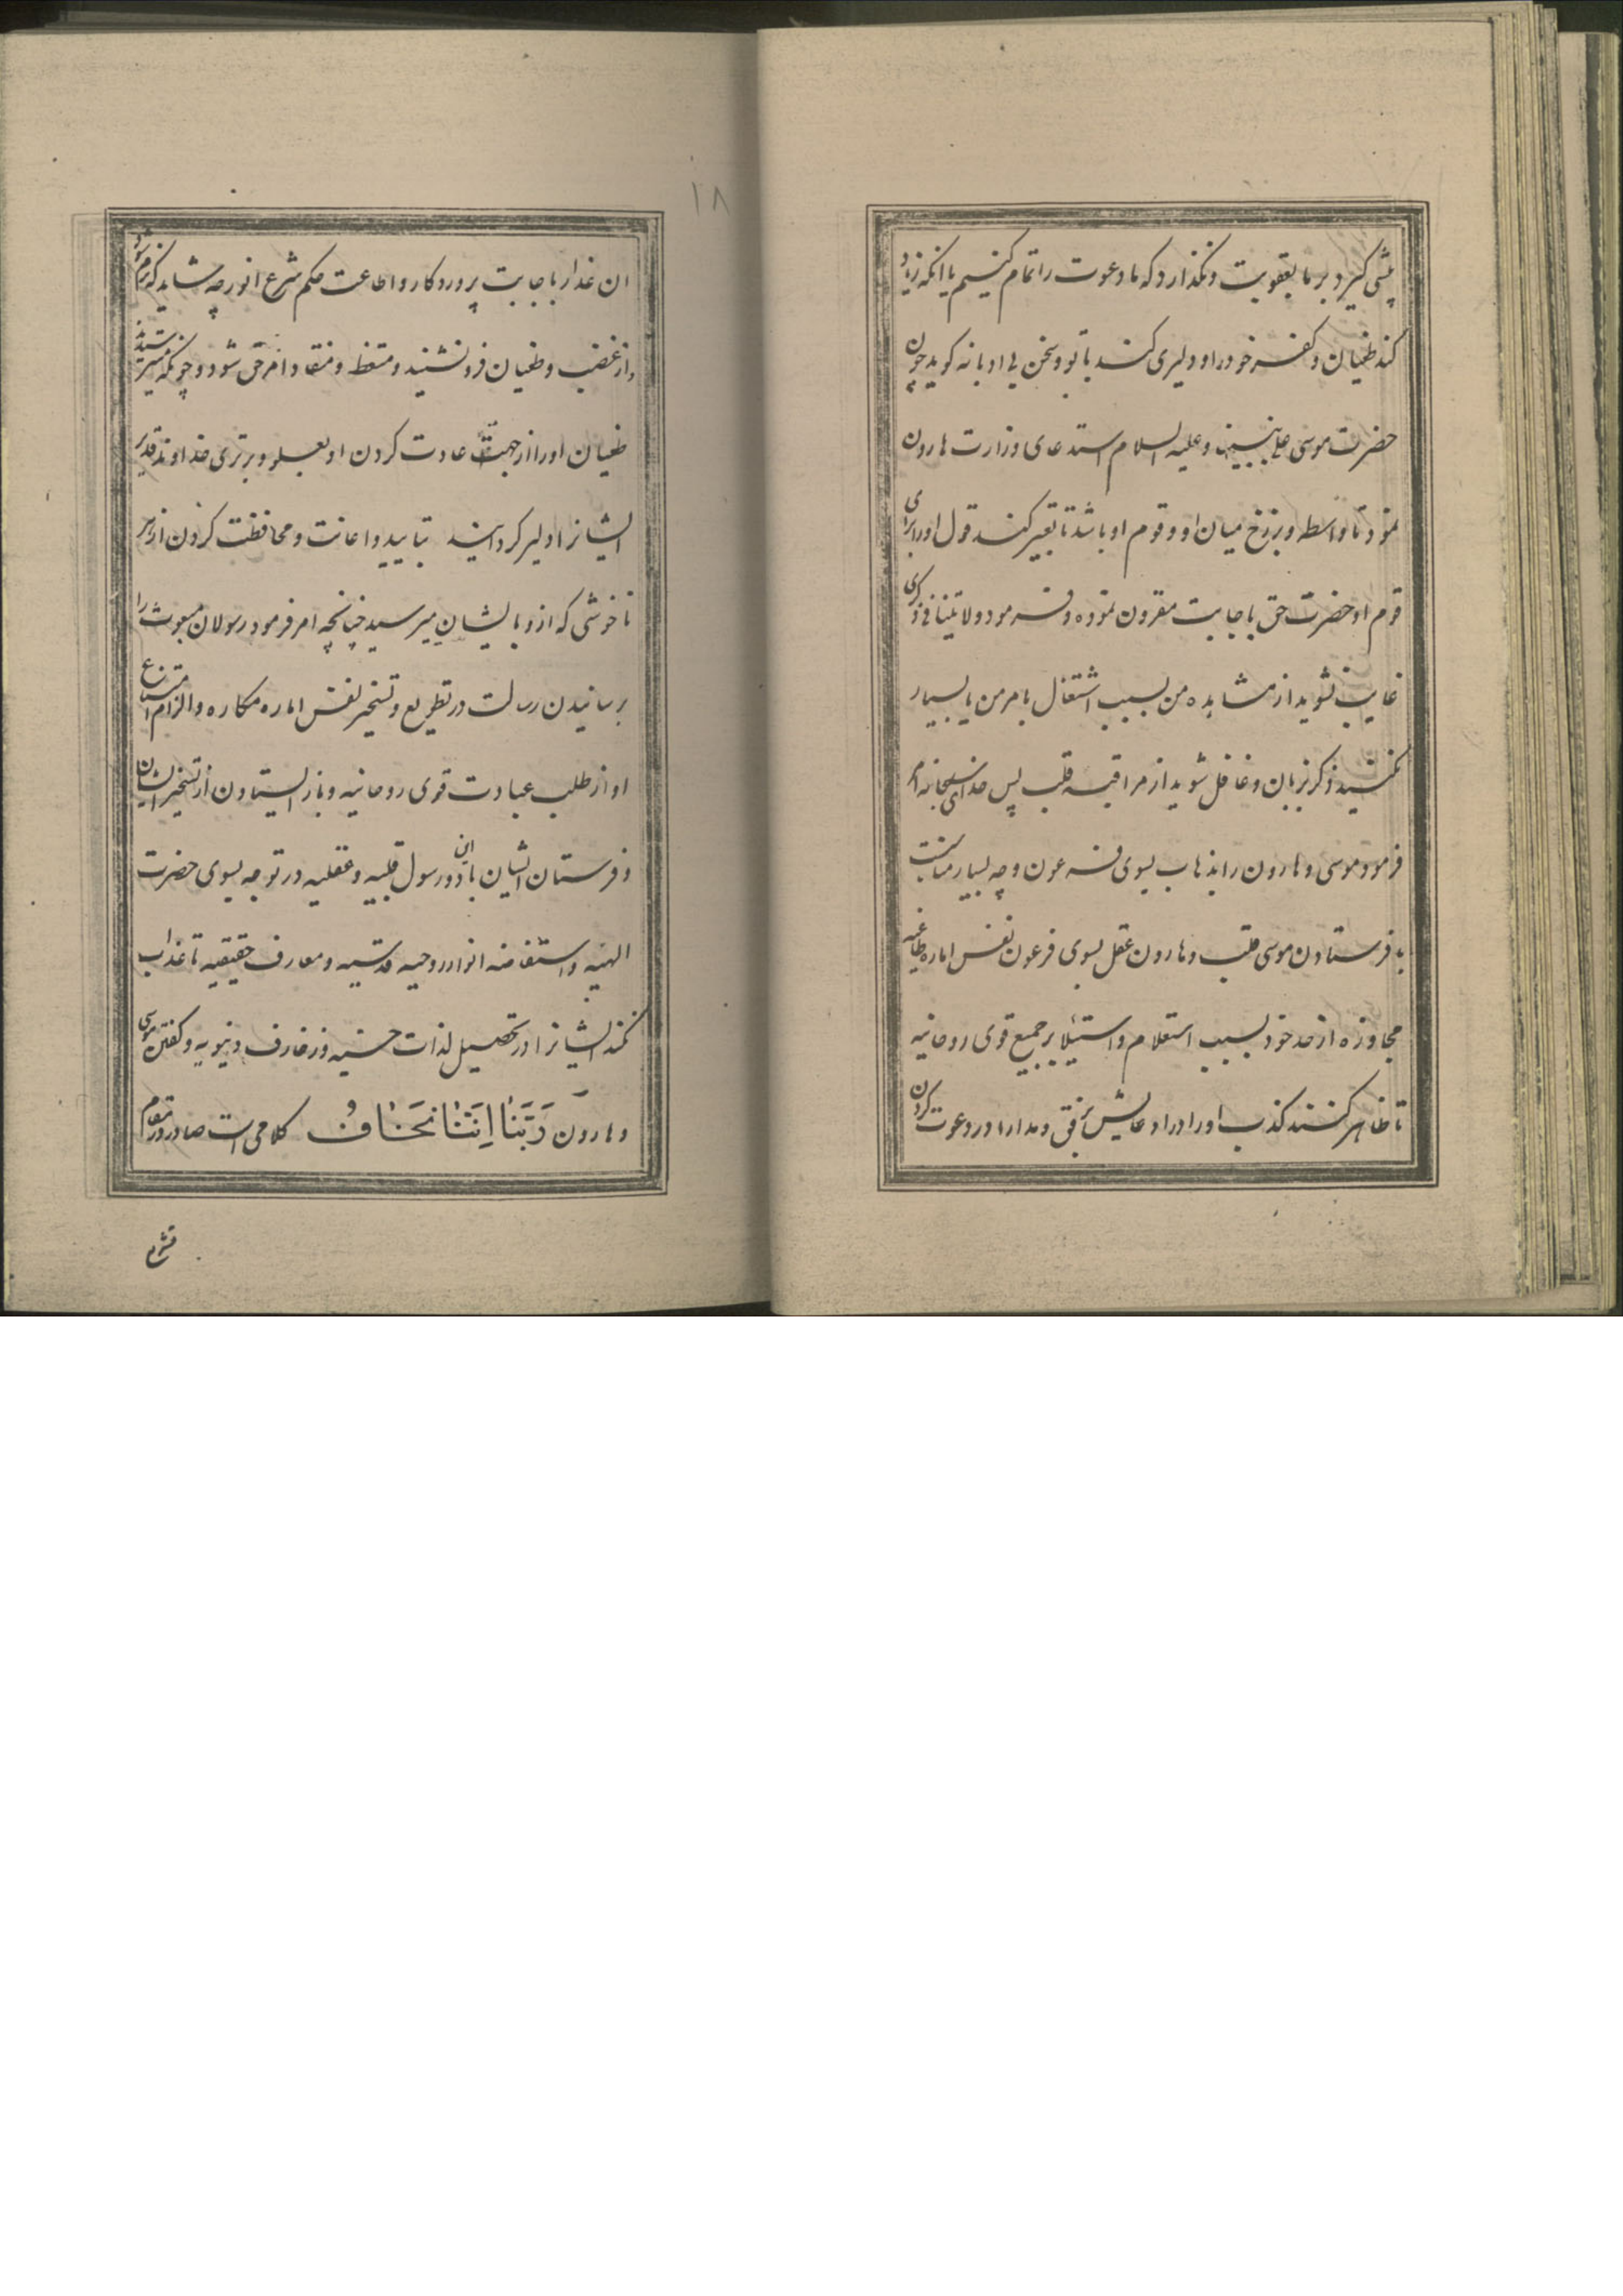 پیشی کیرد بر ما بعقوبت ونکذارد که ما دعوت را تمام کنیم یا انکه زیاد
کند طغیان و کفر خود را و دلیری کند با تو و سخن بی ادبانه کوید چون
حضرت موسی علی نبینا و علیه السلام استدعای وزارت هارون
نمود تا واسطه و برزخ میان او و قوم او باشد تا تعبیر کند قول او را برای
قوم او حضرت حق باجابت مقرون نموده و فرمود ولا تنیا فی ذکری
غایب نشوید از مشاهده من بسبب اشتغال بامر من یا بسیار
نکنید ذکر بزبان و غافل شوید از مراقبه قلب پس خدای سبحانه امر
فرمود موسی و هارون را بذهاب بسوی فرعون و چه بسیار مناسبت
با فرستادن موسی قلب و هارون عقل بسوی فرعون نفس اماره طاغیه
مجاوزه از حد خود بسبب استعلام و استیلا بر جمیع قوی روحانیه
تا ظاهر کنند کذب او را در ادعایش برفق و مدارا در دعوت کردن
۱۸
ان غدار باجابت پروردکار و اطاعت حکم شرع انور چه شاید که نرم شود
و از غضب و طغیان فرو نشیند و متعظ و منقاد امر حق شود و چونکه میترسیدند
طغیان او را از جهت عادت کردن او بعلو و برتری خداوند قدیر
ایشانرا دلیر کردانید بتایید و اعانت و محافظت کردن از هر
ناخوشی که از و بایشان میرسید چنانچه امر فرمود رسولان مبعوث را
برسانیدن رسالت در تطویع و تسخیر نفس اماره مکاره و الزام امتناع
او از طلب عبادت قوی روحانیه و باز ایستادن از تسخیر ایشان
و فرستان ایشان با این دو رسول قلبیه و عقلیه در توجه بسوی حضرت
الهیه و استفاضه انوار روحیه قدسیه و معارف حقیقیه تا عذاب
نکند ایشانرا در تحصیل لذات حسیه و زخارف دنیویه و کفتن موسی
و هارون رَبَّنَا اِنَّنَا نَخَافُ کلامی است صادر در مقام